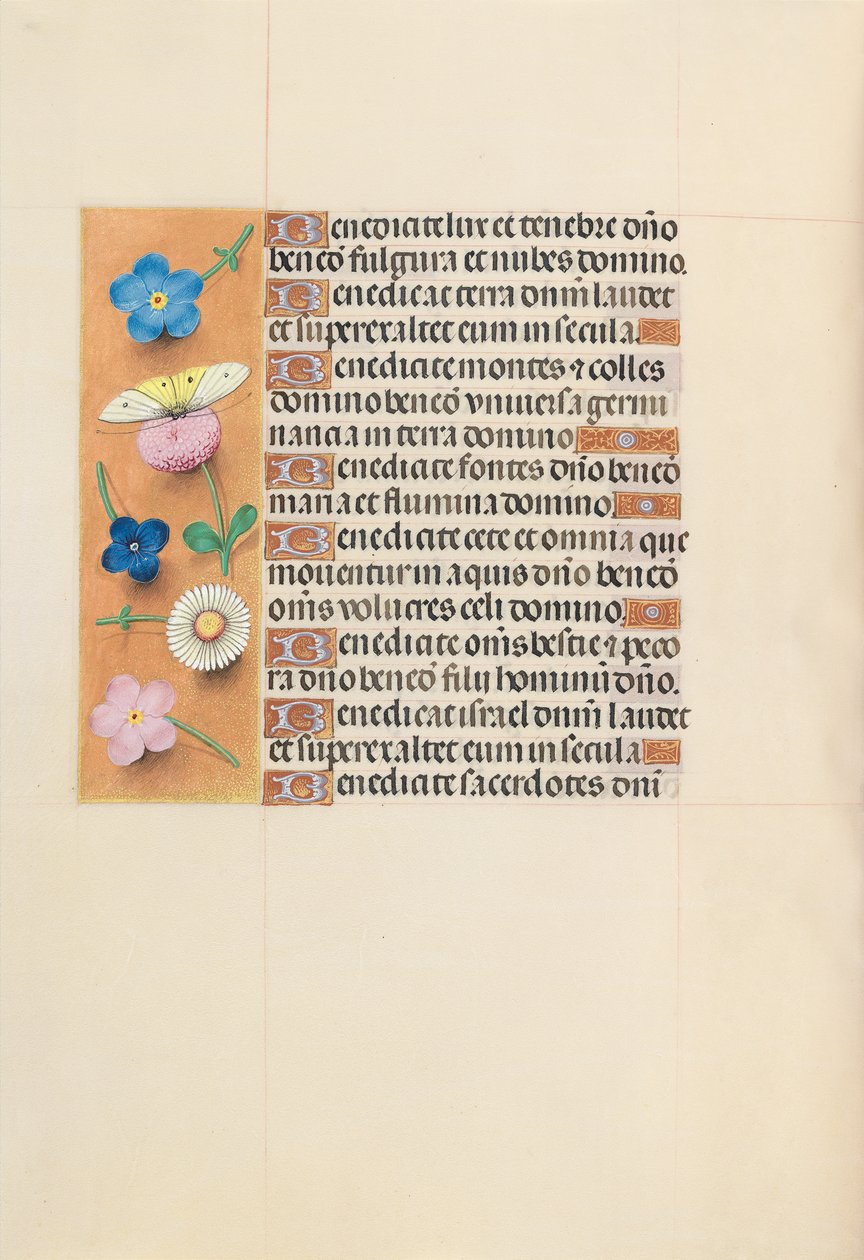 Benedicite lux et tenebre dño
bened̄ fulgura et nubes domino.
Benedicat terra dnm̄ laudet
et superexaltet eum in secula.
Benedicite montes ⁊ colles
domino bened̄ vniuersa germi
nancia in terra domino
Benedicite fontes dño bened̄
maria et flumina domino.
Benedicite cete et omnia que
mouentur in aquis dño bened̄
om̄s volucres celi domino.
Benedicite om̄s bestie ⁊ peco
ra dño bened̄ filij hominū dño.
Benedicat israel dnm̄ laudet
et superexaltet eum in secula
Benedicite sacerdotes dnī